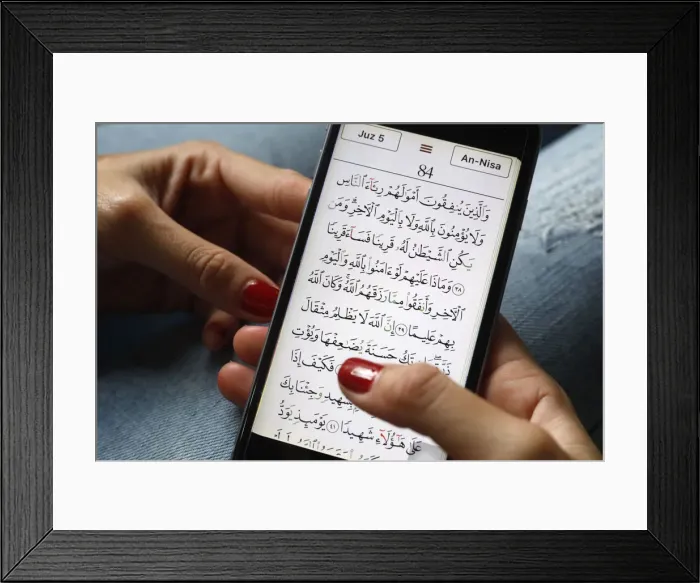 Juz 5
An-Nisa
84
وَٱلَّذِينَ يُنفِقُونَ أَمْوَٰلَهُمْ رِئَآءَ ٱلنَّاسِ
وَلَا يُؤْمِنُونَ بِٱللَّهِ وَلَا بِٱلْيَوْمِ ٱلْـَٔاخِرِ ۗ وَمَن
يَكُنِ ٱلشَّيْطَـٰنُ لَهُۥ قَرِينًا فَسَآءَ قَرِينًا
٣٨ وَمَاذَا عَلَيْهِمْ لَوْ ءَامَنُوا۟ بِٱللَّهِ وَٱلْيَوْمِ
ٱلْـَٔاخِرِ وَأَنفَقُوا۟ مِمَّا رَزَقَهُمُ ٱللَّهُ ۚ وَكَانَ ٱللَّهُ
بِهِمْ عَلِيمًا ٣٩ إِنَّ ٱللَّهَ لَا يَظْلِمُ مِثْقَالَ
تَكُ حَسَنَةً يُضَـٰعِفْهَا وَيُؤْتِ
فَكَيْفَ إِذَا
بِشَهِيدٍ وَجِئْنَا بِكَ
عَلَىٰ هَـٰٓؤُلَآءِ شَهِيدًا ٤١ يَوْمَئِذٍ يَوَدُّ